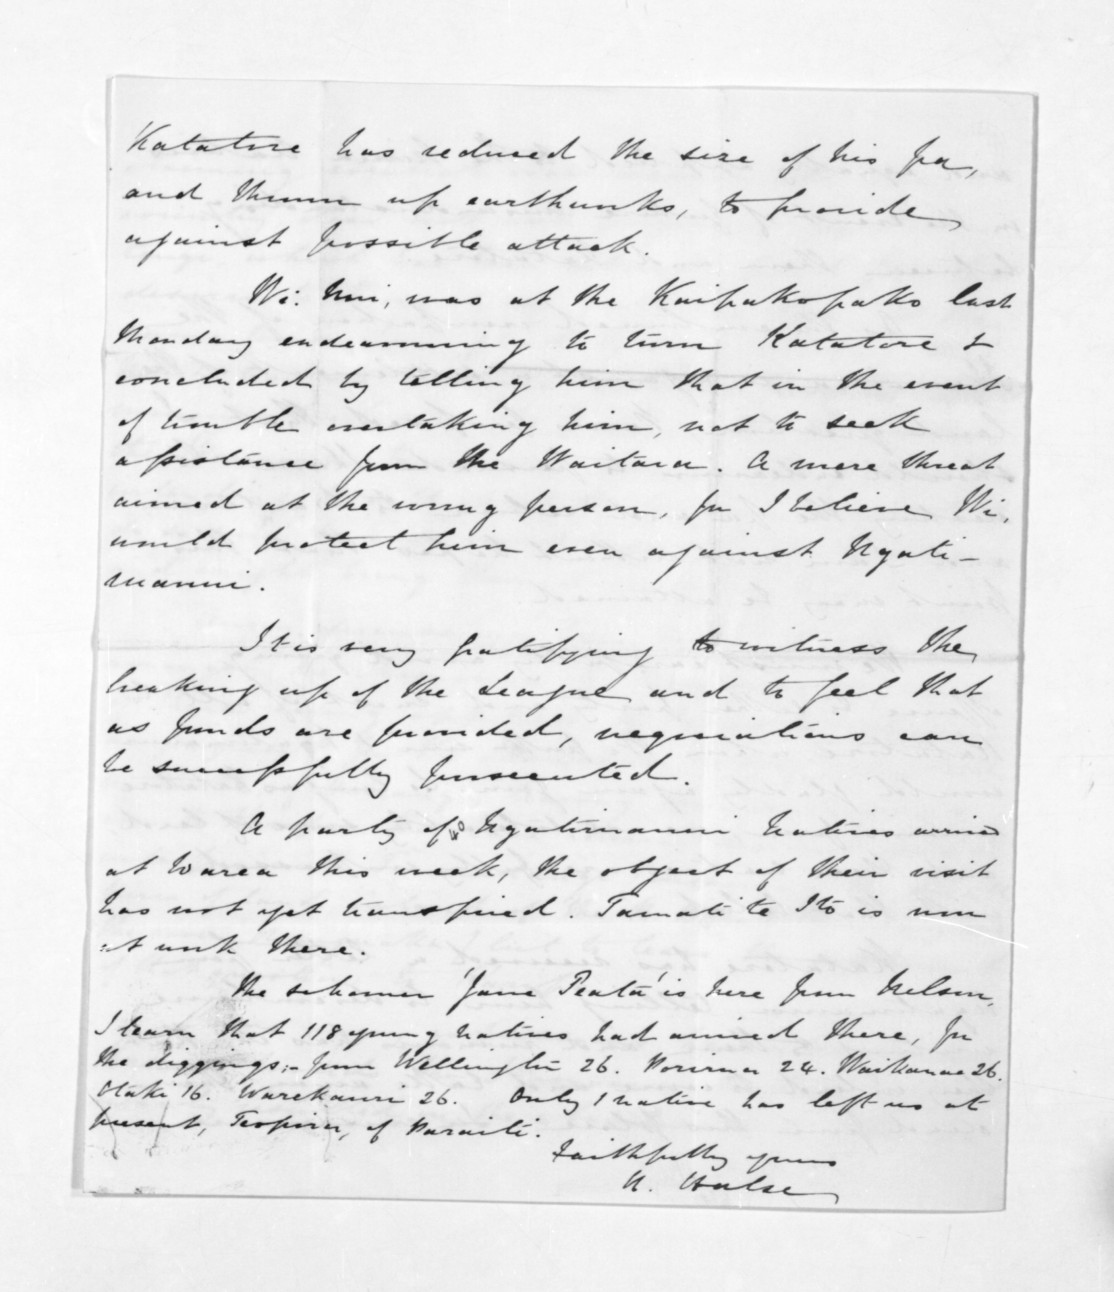 Katatore has reduced the size of his pa,
and thrown up earthworks, to provide
against possible attack.
Wi: was at the Kaipakopako last
Monday endeavouring to turn Katatore &
concluded by telling him that in the event
of trouble overtaking him, not to seek
assistance from the Waitara. A mere threat
aimed at the wrong person, for I believe Wi,
would protect him even against Ngati-
maniu.
It is very gratifying to witness the
breaking up of the League and to feel that
as funds are provided, negociations can
be successfully prosecuted.
A party of 40 Ngatimaniu natives arrive
at Warea this week, the object of their visit
has not yet transpired. Tamati te Ito is now
at work there.
The schooner 'Jane Peata' is here from Nelson,
I learn that 118 young natives had arrived there, for
the diggings:- from Wellington 26. Porirua 24. Waikanae 26.
Otaki 16. Warekauri 26. Only 1 native has left us at
present, Teopira, of Paraiti.
Faithfully yours
H. Halse